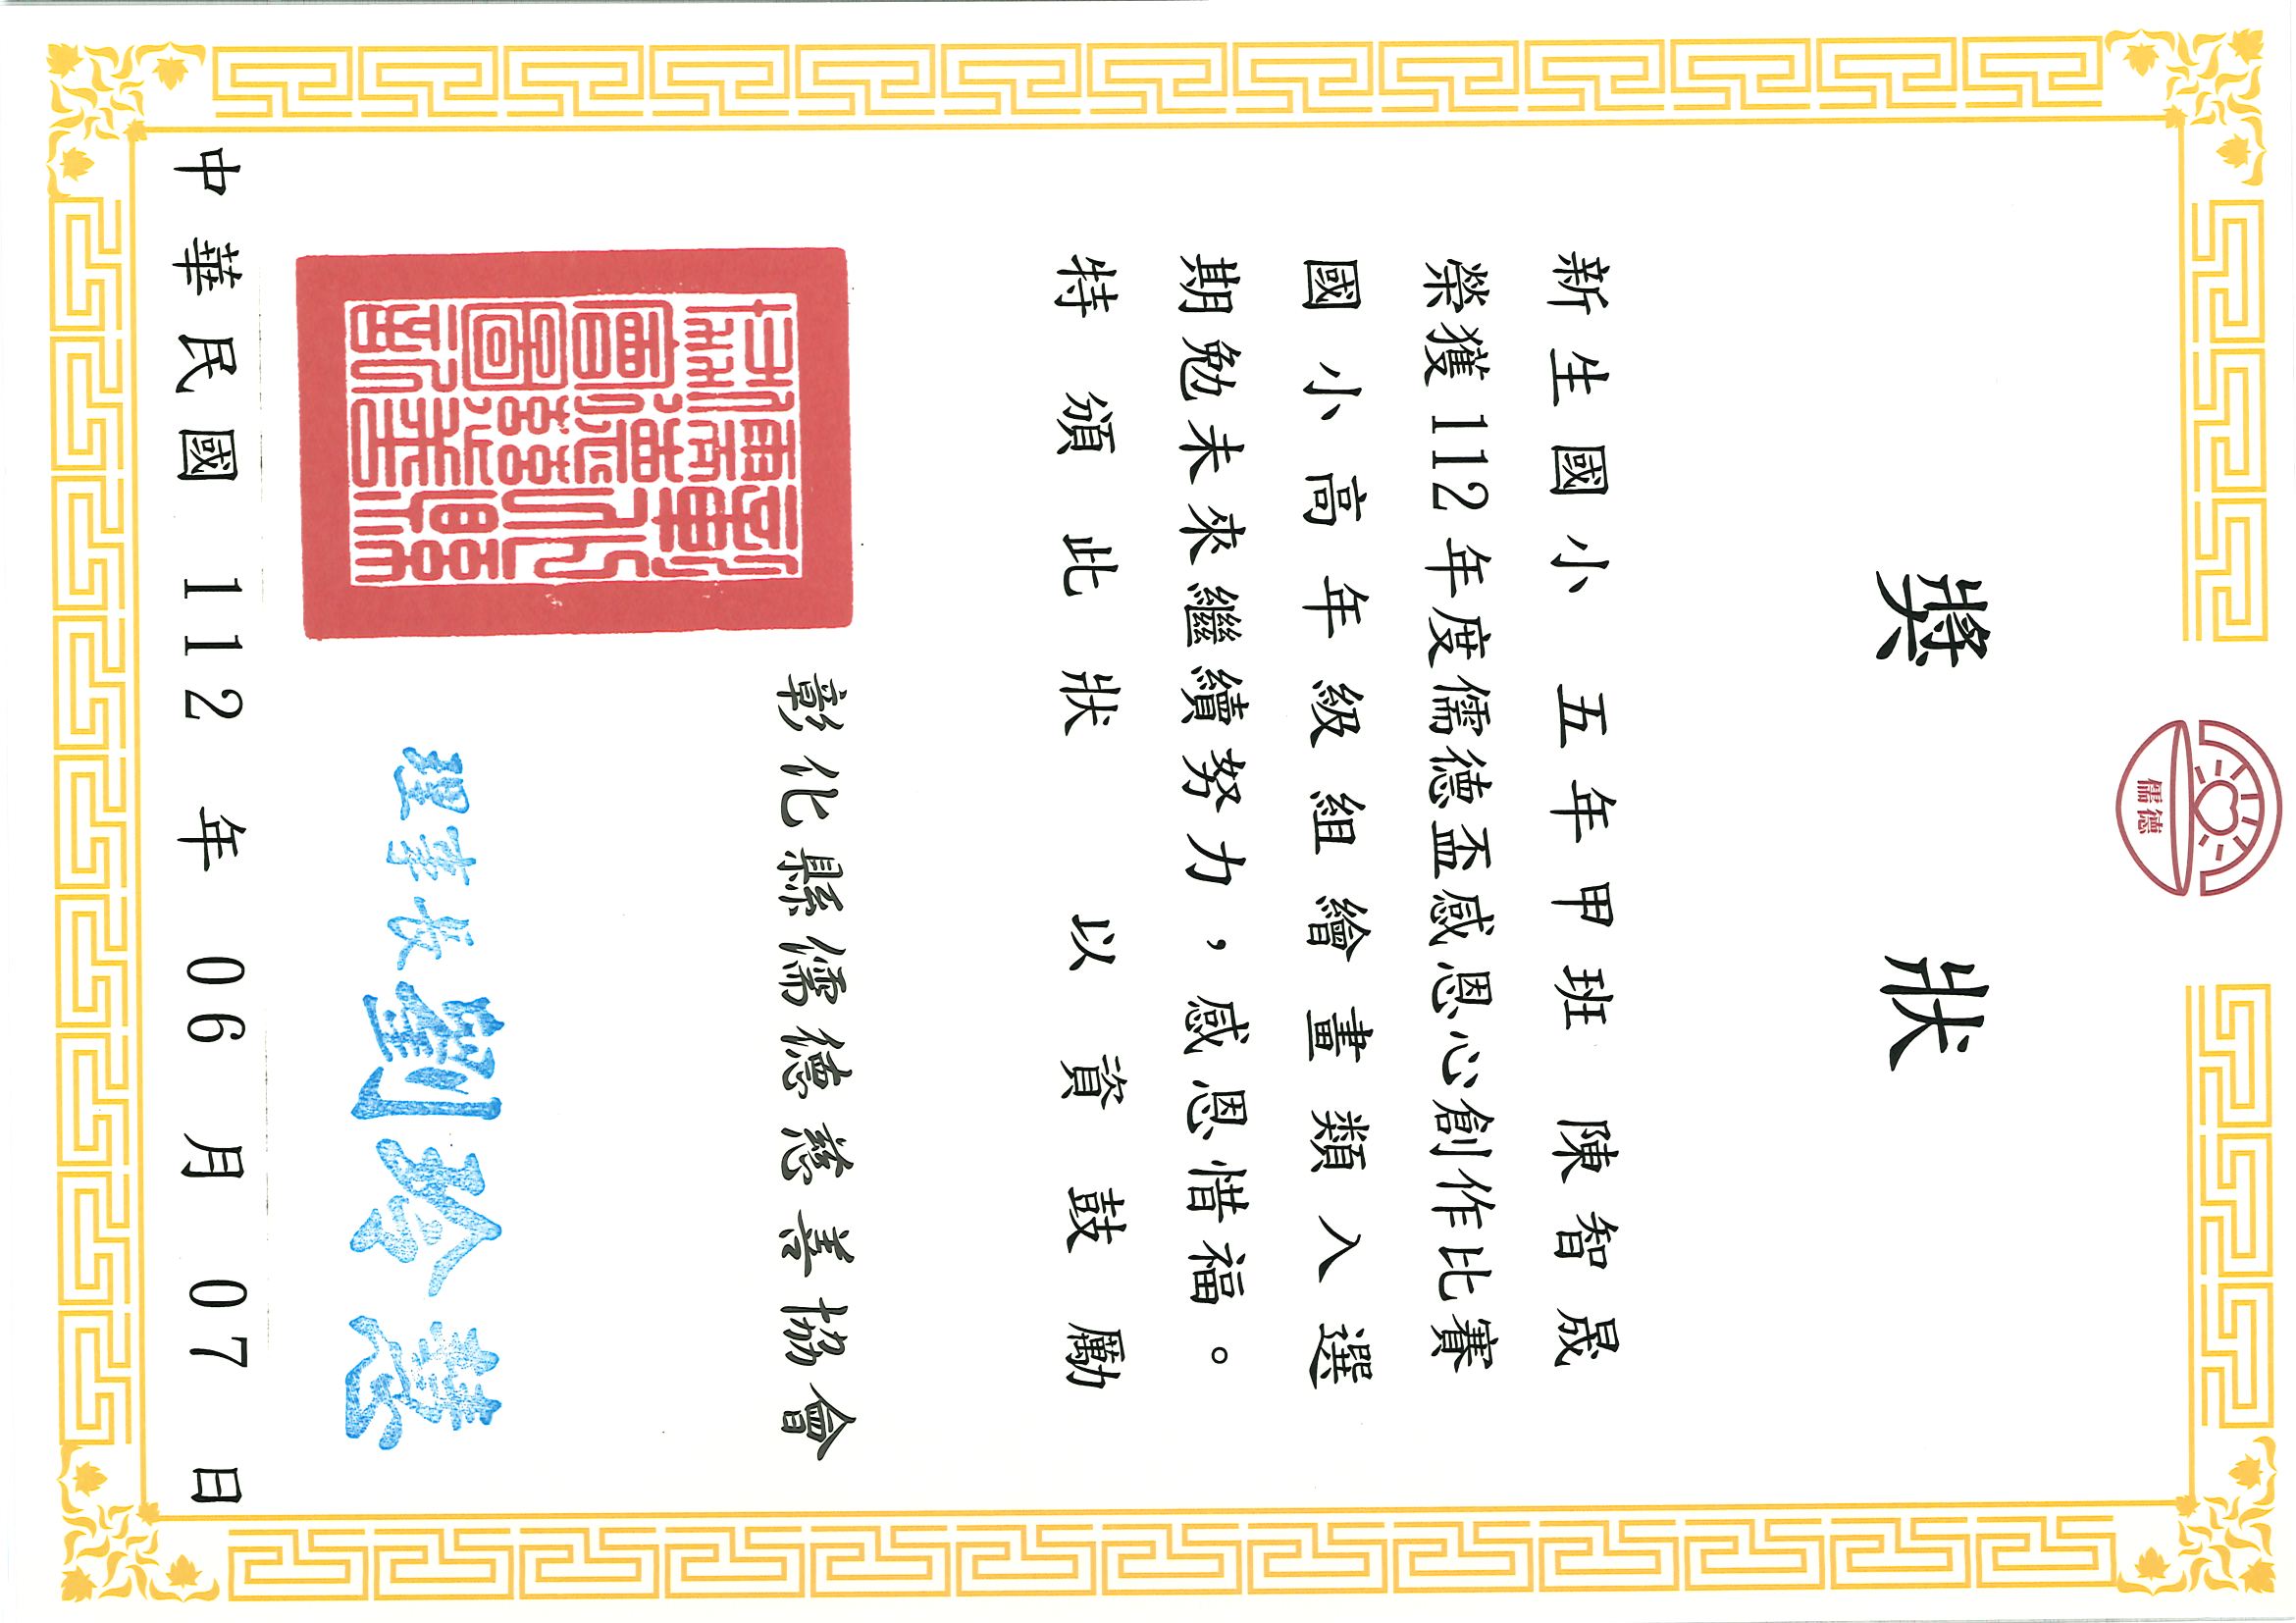 儒德
獎狀
新生國小 五年甲班 陳智晟
榮獲112年度儒德盃感恩心創作比賽
國小高年級組繪畫類入選
期勉未來繼續努力，感恩惜福。
特頒此狀 以資鼓勵
彰化縣儒德慈善協會
理事長 劉玲慧
中華民國 112 年 06 月 07 日